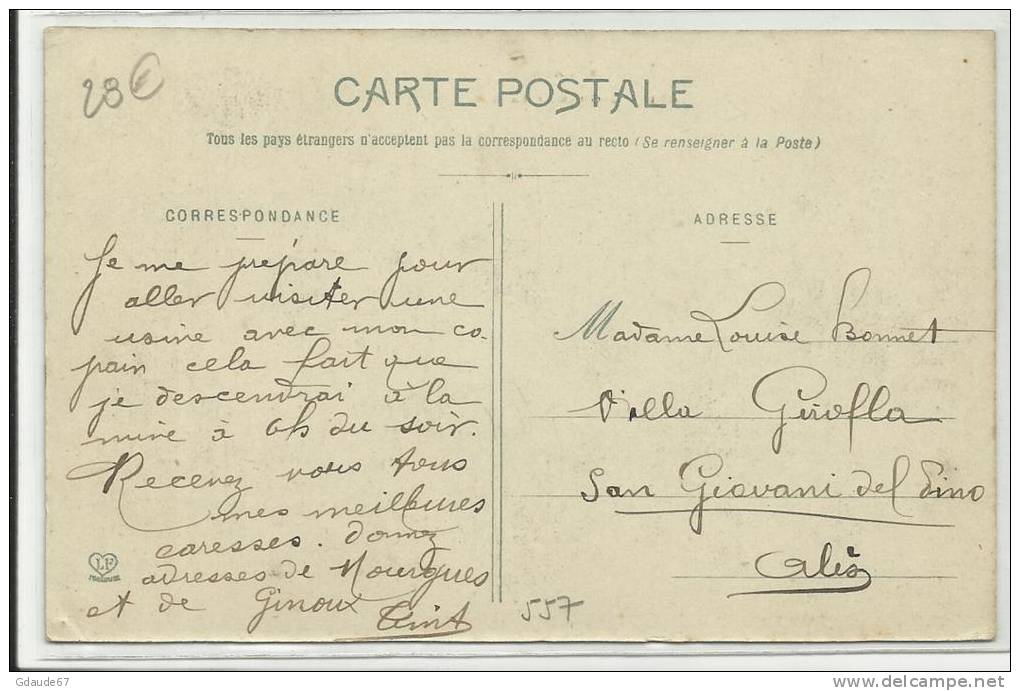 28 €
CARTE POSTALE
Tous les pays étrangers n'acceptent pas la correspondance au recto (Se renseigner à la Poste)
CORRESPONDANCE
Je me prépare pour
aller visiter une
usine avec mon co-
pain cela fait que
je descendrai à la
mine à 6h du soir.
Recevez vous tous
mes meilleures
caresses. donnez
adresses de Mourgues
et de Ginoux
LF
ADRESSE
Madame Louise Bonnet
Villa Girofla
San Giovani del Pino
Alès
557
Gdaude67
delcampe.net